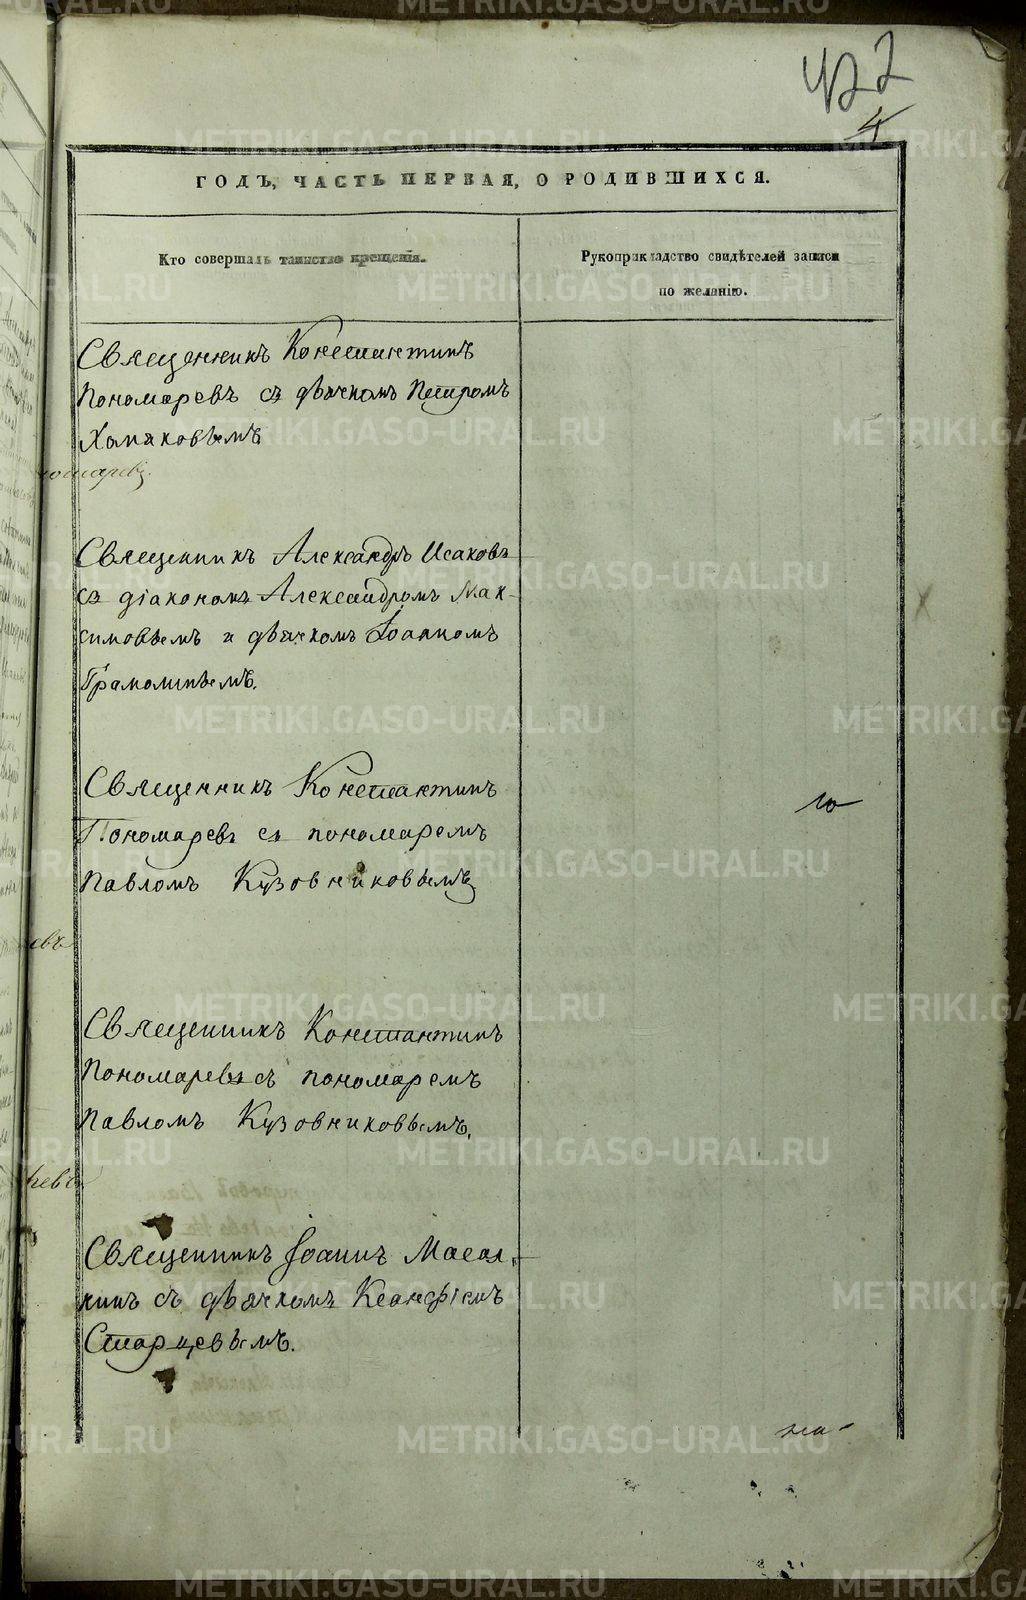 422
4
ГОДЪ, ЧАСТЬ ПЕРВАЯ, О РОДИВШИХСЯ.
Кто совершалъ таинство крещенія.
Рукоприкладство свидѣтелей записи
по желанію.
Священникъ Константинъ
Пономаревъ съ дьячкомъ Петромъ
Хомяковымъ
Священникъ Александръ Исаковъ
съ діакономъ Александромъ Мак-
симовымъ и дьячкомъ Іоанномъ
Грамолинымъ.
Священникъ Константинъ
Пономаревъ съ пономаремъ
Павломъ Кузовниковымъ
Священникъ Константинъ
Пономаревъ съ пономаремъ
Павломъ Кузовниковымъ.
Священникъ Іоаннъ Масал-
кинъ съ дьячкомъ Ксанфіемъ
Старцевымъ.
METRIKI.GASO-URAL.RU